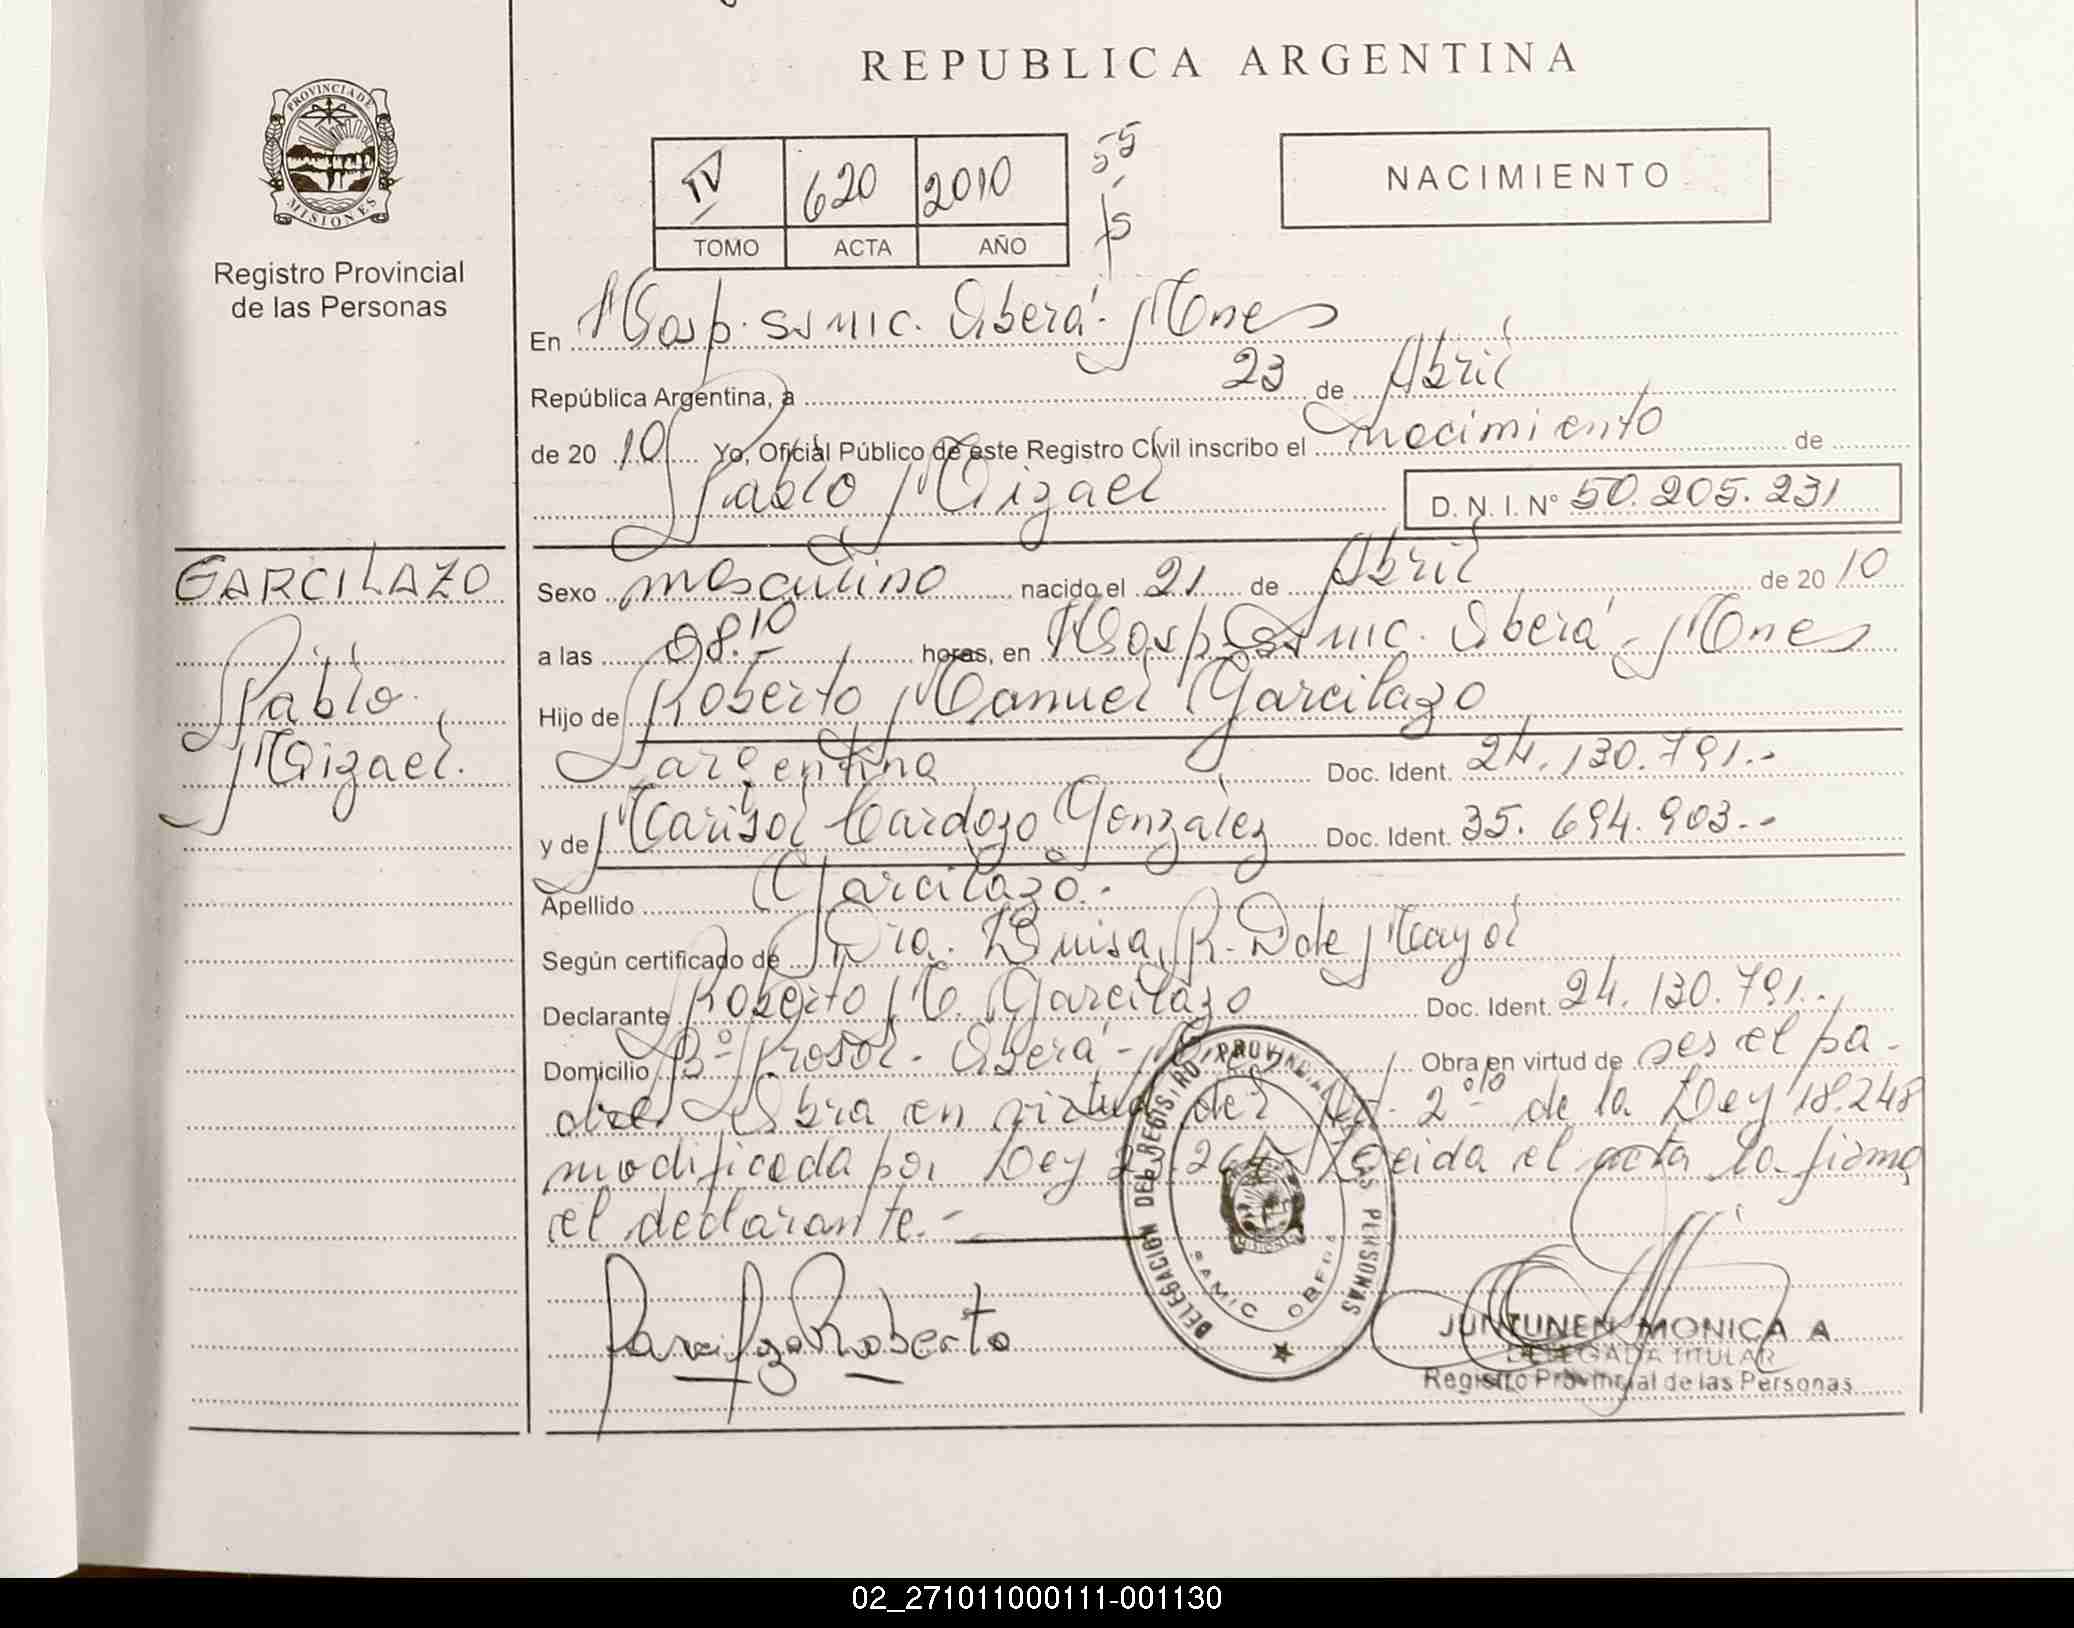 REPUBLICA ARGENTINA
PROVINCIA DE
MISIONES
Registro Provincial
de las Personas
IV 620 2010
TOMO ACTA AÑO
55
15
NACIMIENTO
En Hosp. SAMIC. Oberá - Mnes
República Argentina, a 23 de Abril
de 20 10 Yo, Oficial Público de este Registro Civil inscribo el nacimiento de
Pablo Mizael
D. N. I. N° 50.205.231
GARCILAZO
Pablo
Mizael.
Sexo masculino nacido el 21 de Abril de 20 10
a las 08.10 horas, en Hosp. SAMIC. Oberá - Mnes
Hijo de Roberto Manuel Garcilazo
argentino Doc. Ident. 24.130.791.-
y de Marisol Cardozo Gonzalez Doc. Ident. 35.694.903.-
Apellido Garcilazo.
Según certificado de Dra. Luisa R. D de Mayol
Declarante Roberto M. Garcilazo Doc. Ident. 24.130.791.-
Domicilio B° Prosol - Oberá - Mnes Obra en virtud de ser el pa-
dre. Obra en virtud del Art. 2° de la Ley 18.248
modificada por Ley Leida el acta la firma
el declarante.-
Garcilazo Roberto
DELEGACION DEL REGISTRO PROVINCIAL DE LAS PERSONAS
SAMIC OBERA
JUNTUNEN MONICA A
DELEGADA TITULAR
Registro Provincial de las Personas
02_271011000111-001130